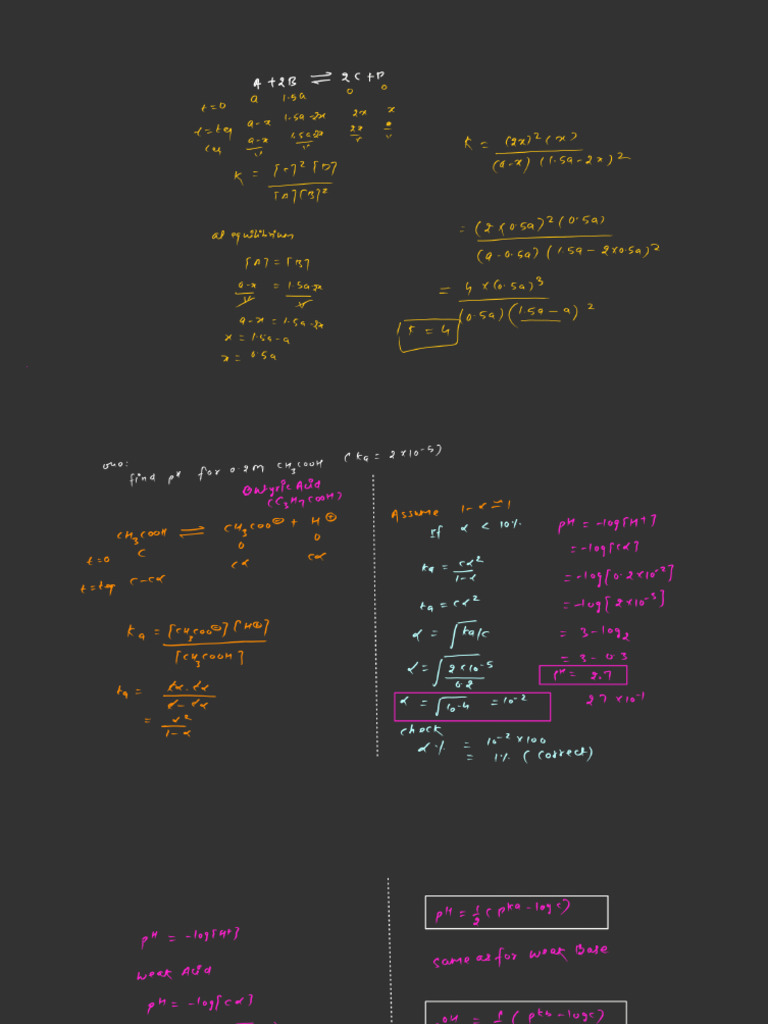 A + 2B ⇌ 2C + D
t=0 a 1.5a 0 0
t=teq a-x 1.5a-2x 2x x
a-x/v 1.5a-2x/v 2x/v x/v
K = [C]² [D] / [A][B]²
at equilibrium
[A] = [B]
a-x/v = 1.5a-2x/v
a-x = 1.5a-2x
x = 1.5a-a
x = 0.5a
K = (2x)² (x) / (a-x) (1.5a-2x)²
= (2×0.5a)² (0.5a) / (a-0.5a) (1.5a-2×0.5a)²
= 4×(0.5a)³ / (0.5a) (1.5a-a)²
= 4
Que:
find pH for 0.2M CH₃COOH (ka = 2×10-5)
Butyric Acid
(C₃H₇COOH)
CH₃COOH ⇌ CH₃COO⊖ + H⊕
t=0 C 0 0
t=teq C-Cα Cα Cα
Ka = [CH₃COO⊖] [H⊕] / [CH₃COOH]
ka = Cα·Cα / C-Cα
= α² / 1-α
Assume 1-α ≃ 1
If α < 10%
ka = Cα² / 1-α
ka = Cα²
α = √ka/c
α = √2×10-5 / 0.2
α = √10-4 = 10-2
check
α% = 10-2 × 100
= 1% (correct)
pH = -log[H+]
= -log[Cα]
= -log[0.2×10-2]
= -log[2×10-3]
= 3-log2
= 3-0.3
pH = 2.7
27 ×10-1
pH = -log[H+]
weak Acid
pH = -log[Cα]
pH = 1/2 (pka-logc)
same as for weak Base
pOH = 1/2 (pkb-logc)